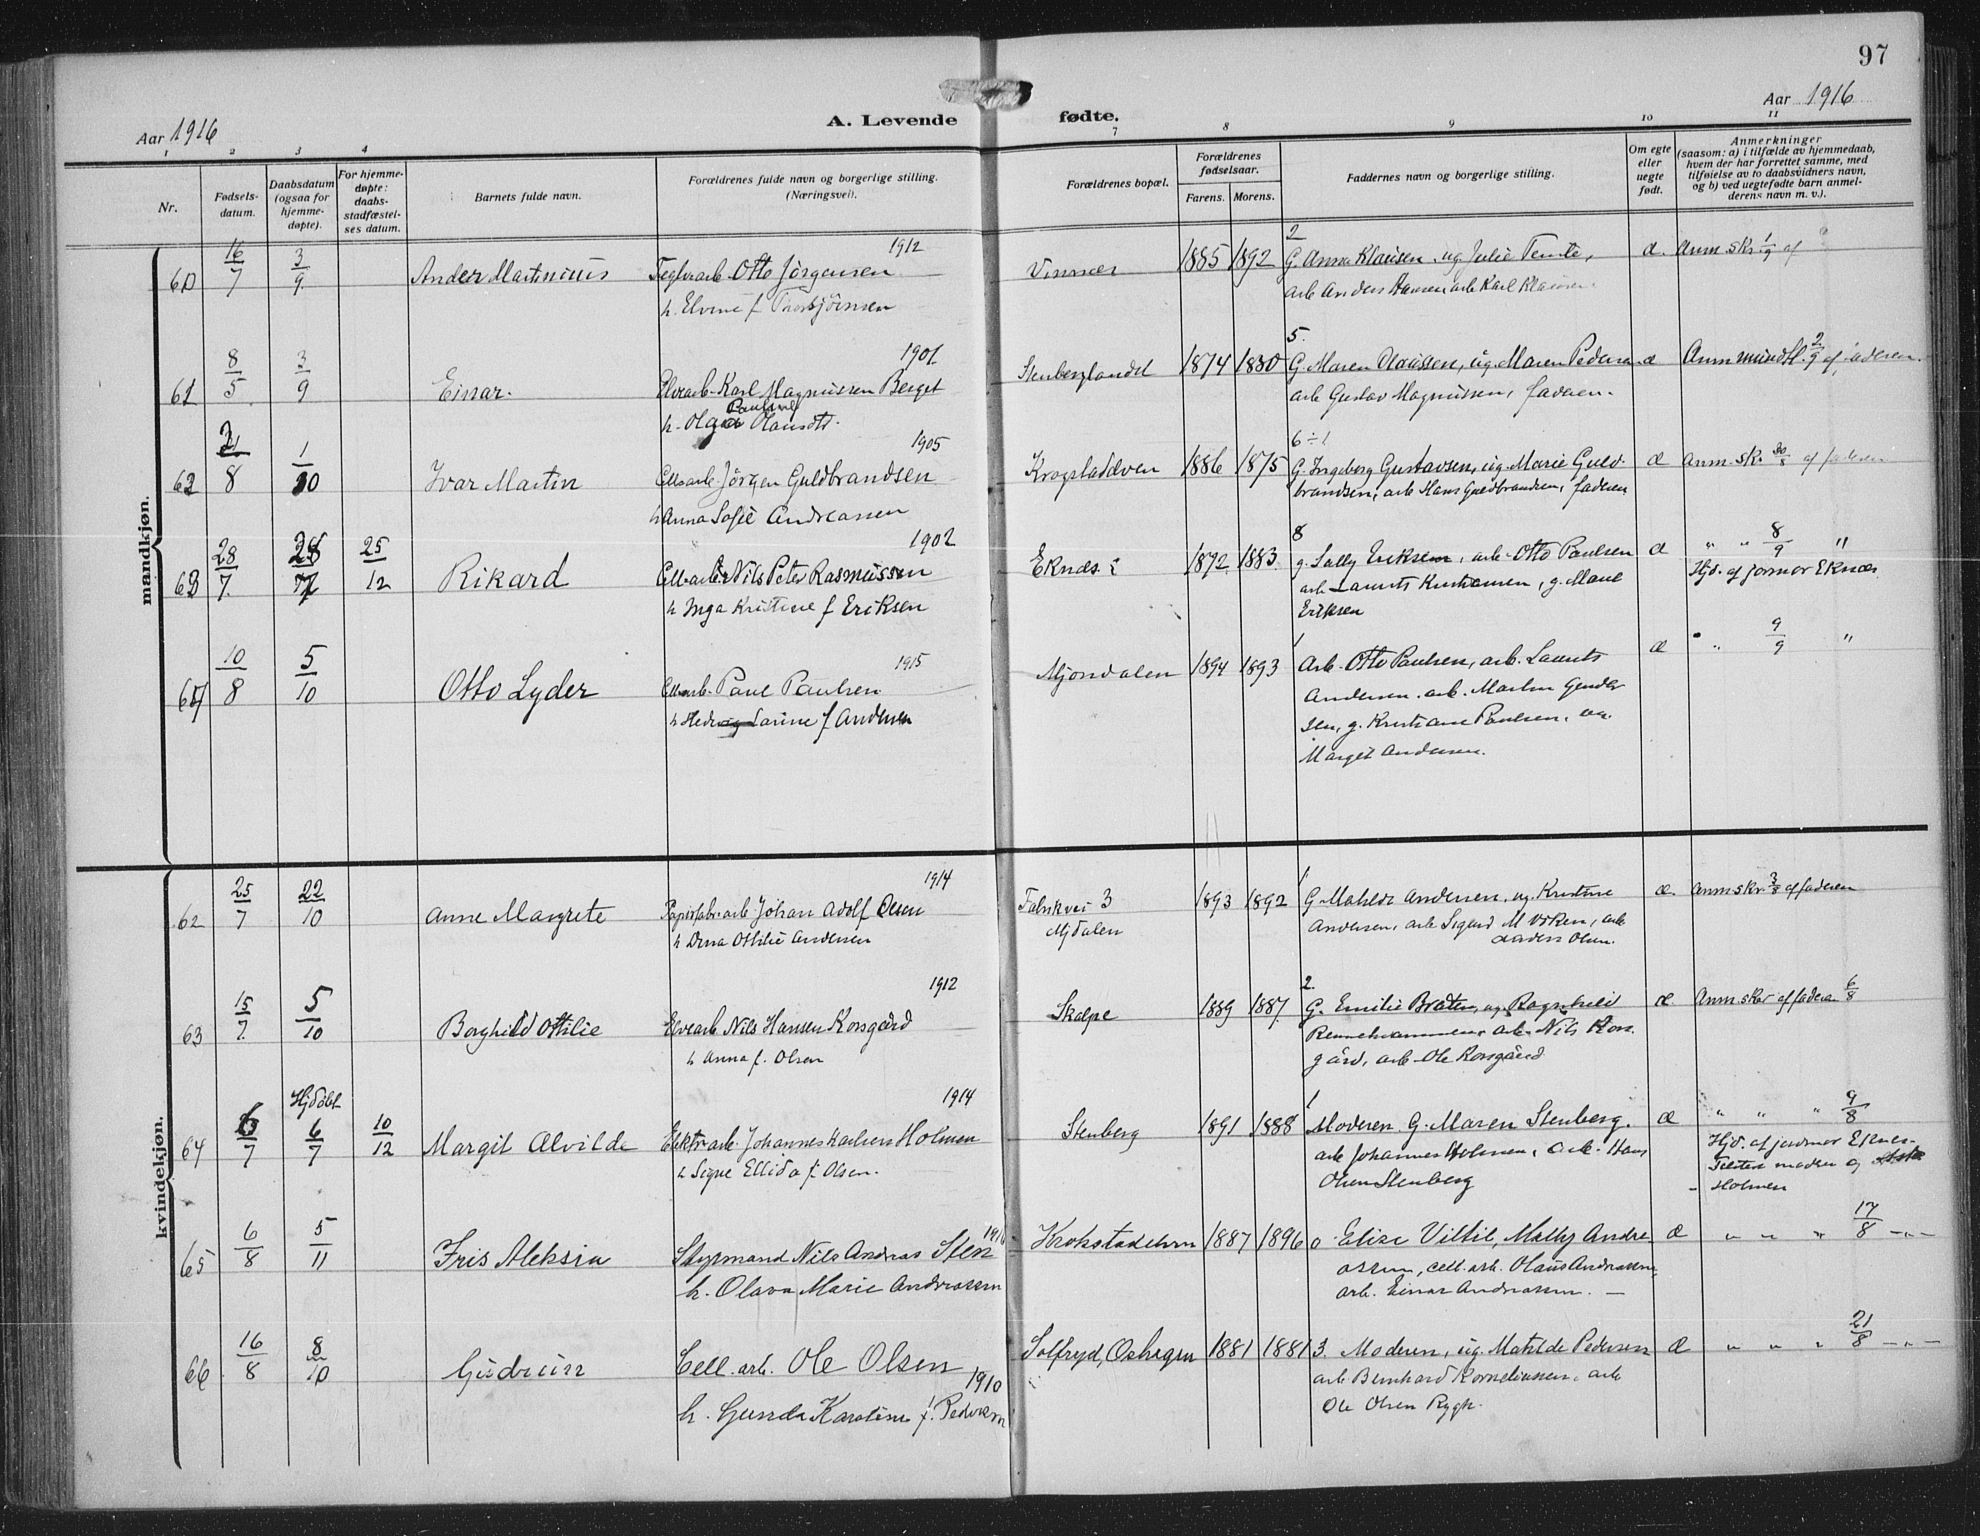 97
Aar 1916
A. Levende fødte.
Aar 1916
1 2 3 4 7 8 9 10 11
Nr.
Fødsels-
datum.
Daabsdatum
(ogsaa for
hjemme-
døpte).
For hjemme-
døpte:
daabs-
stadfæstel-
ses datum.
Barnets fulde navn.
Forældrenes fulde navn og borgerlige stilling.
(Næringsvei).
Forældrenes bopæl.
Forældrenes
fødselsaar.
Farens. Morens.
Faddernes navn og borgerlige stilling.
Om egte
eller
uegte
født.
Anmerkninger
(saasom: a) i tilfælde av hjemmedaab,
hvem der har forrettet samme, med
tilføielse av to daabsvidners navn,
og b) ved uegtefødte barn anmel-
derens navn m. v.).
mandkjøn.
60 16/7 3/9 Ander Martinius
1912
Teglverarb. Otto Jörgensen
h. Elvine f. Thorbjörnsen
Vinnæs 1885 1892
2
G. Anna Klausen, ug Julie Temte,
arb Anders Hansen, arb Karl Klausen
æ. Anm. skr 1/9 af
61 8/5 3/9 Einar.
1901
Elvearb. Karl Magnussen Berget
Paulsen
h. Olga Olausdt.
Stenberglandet 1874 1880
5.
G. Maren Olaussen, ug. Maren Pedersen
arb Gustav Magnussen, faderen.
æ Anm mundtl. 2/9 af faderen.
62 31/8 1/10 Ivar Martin
1905
Cellarb. Jörgen Guldbrandsen
h Anna Sofie Andreassen
Krogstadelven 1886 1875
6 ÷ 1
G. Ingeborg Gustavsen, ug. Marie Guld-
brandsen, arb Hans Guldbrandsen, faderen
æ Anm. sk. 30/8 af faderen
63 28/7 28/7 25/12 Rikard
1902
Cellarb. Nils Peter Rasmussen
h Inga Kristine f Eriksen
Eknæs 1892. 1883.
8
g. Sally Eriksen, arb. Otto Paulsen
arb Laurits Kristiansen, g. Marie
Eriksen
æ " " 8/9 "
Hjd. af jormor Eknæs.
64 10/8 5/10 Otto Lyder
1915
Cellarb. Paul Paulsen
h Hedvig Larine f Andersen
Mjöndalen 1894 1893
1
Arb. Otto Paulsen, arb. Laurits
Andersen. arb. Martin Gunder
sen, g. Kristiane Paulsen, ug.
Margit Andersen.
æ " " 9/9 "
kvindekjøn.
62 25/7 22/10 Anne Margrete
1914
Papirfabr.arb Johan Adolf Olsen
h Dina Ottilie Andersen
Fabrikvei 3
Mjdalen
1893 1892
1
G Mathilde Andersen, ug. Kristine
Andersen, arb Sigurd M Viken, arb
Anders Olsen.
æ. Anm skr. 3/8 af faderen
63 15/7. 5/10 Borghild Ottilie
1912
Elvearb Nils Hansen Korsgård
h Anna f. Olsen
Skalpe 1889 1887.
2.
G. Emilie Bråten, ug Ragnhild
arb. Nils Kors
gård, arb. Ole Korsgård
æ. Anm skr af faderen 6/8
64 6/7 Hjdöbt 6/7 10/12 Margit Alvilde
1914
Elektrarb. Johannes Karlsen Holmen
h Signe Ellida f. Olsen.
Stenberg 1891 1888
1
Moderen G. Maren Stenberg.
arb Johannes Holmen, arb. Hans
Olsen Stenberg
æ " " " 9/8
Hjd. af jordmor Eknes-
Testes moder og
- Holmen
65 6/8 5/11 Fris Aleksia
1916
Styrmand Nils Andreas Sten
h. Olava Marie Andreassen
Krokstadelven 1887 1896
0 Elise Viltil, Molly Andre
assen, cell. arb. Olaus Andreassen,
arb. Einar Andreassen. —
æ " " " 17/8 - " -
66 16/8 8/10 Gudrun
Cell. arb. Ole Olsen
1910
h. Gunda Karoline f. Pedersen
Solfryd, Oshagen 1881 1881
3. Moderen, ug. Matilde Pedersen
arb Bernhard Korneliussen, arb
Ole Olsen Rygh.
æ " " " 21/8 - " -